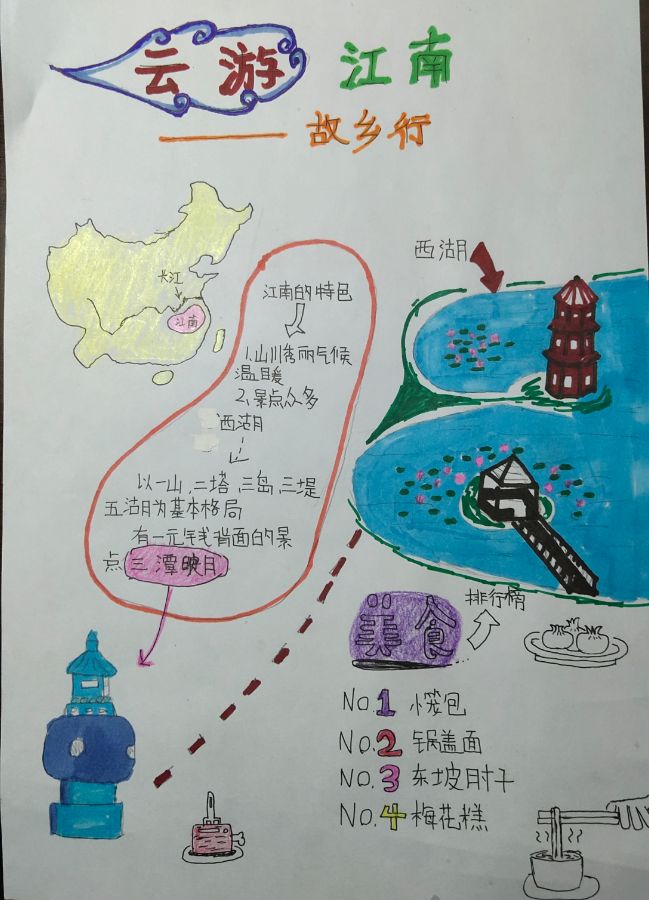 云游 江南
—— 故乡行
长江
江南
江南的特色
1.山川秀丽气候
温暖
2、景点众多
西湖
以一山、二塔、三岛、三堤
五湖为基本格局
有一元钱背面的景
点三潭映月
西湖
美食
排行榜
No.1 小笼包
No.2 锅盖面
No.3 东坡肘子
No.4 梅花糕